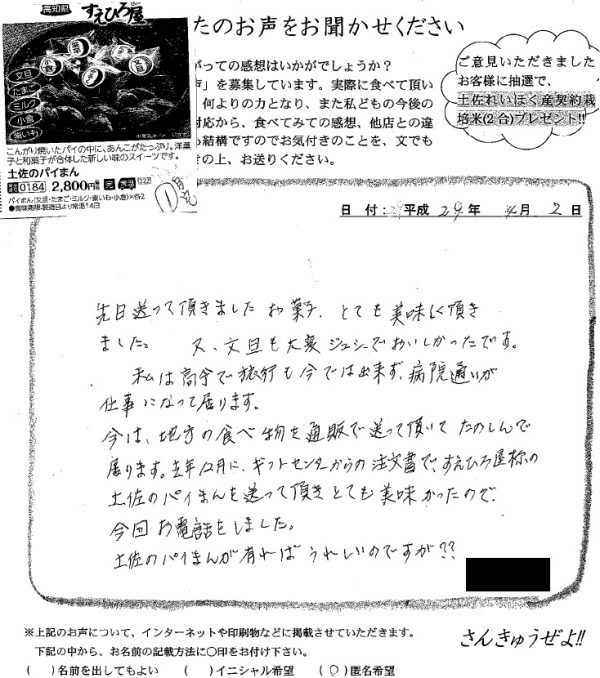 高知県 すえひろ屋
たのお声をお聞かせください
がっての感想はいかがでしょうか？
」を募集しています。実際に食べて頂い
何よりの力となり、また私どもの今後の
対応から、食べてみての感想、他店との違
結構ですのでお気付きのことを、文でも
の上、お送りください。
ご意見いただきました
お客様に抽選で、
土佐れいほく産契約栽
培米(2合)プレゼント!!
文旦
たまご
ミルク
小倉
紫いも
こんがり焼いたパイの中に、あんこがたっぷり。洋菓
子と和菓子が合体した新しい味のスイーツです。
土佐のパイまん
0184 2,800円
パイまん(文旦・たまご・ミルク・紫いも・小倉)×各2
●賞味期限:製造日より常温14日
①
日付: 平成 29年 4月 2日
先日送って頂きました お菓子、とても美味しく頂き
ました。 又、文旦も大変ジュシーでおいしかったです。
私は高令で旅行も今では出来ず、病院通りが
仕事になって居ります。
今は、地方の食べ物を通販で送って頂いて たのしんで
居ります。去年12月に、ギフトセンターからの注文書で、すえひろ屋様の
土佐のパイまんを送って頂きとても美味かったので、
今回お電話をしました。
土佐のパイまんが有ればうれしいのですが??
※上記のお声について、インターネットや印刷物などに掲載させていただきます。
下記の中から、お名前の記載方法に○印をお付け下さい。
( )名前を出してもよい ( )イニシャル希望 (○)匿名希望
さんきゅうぜよ!!